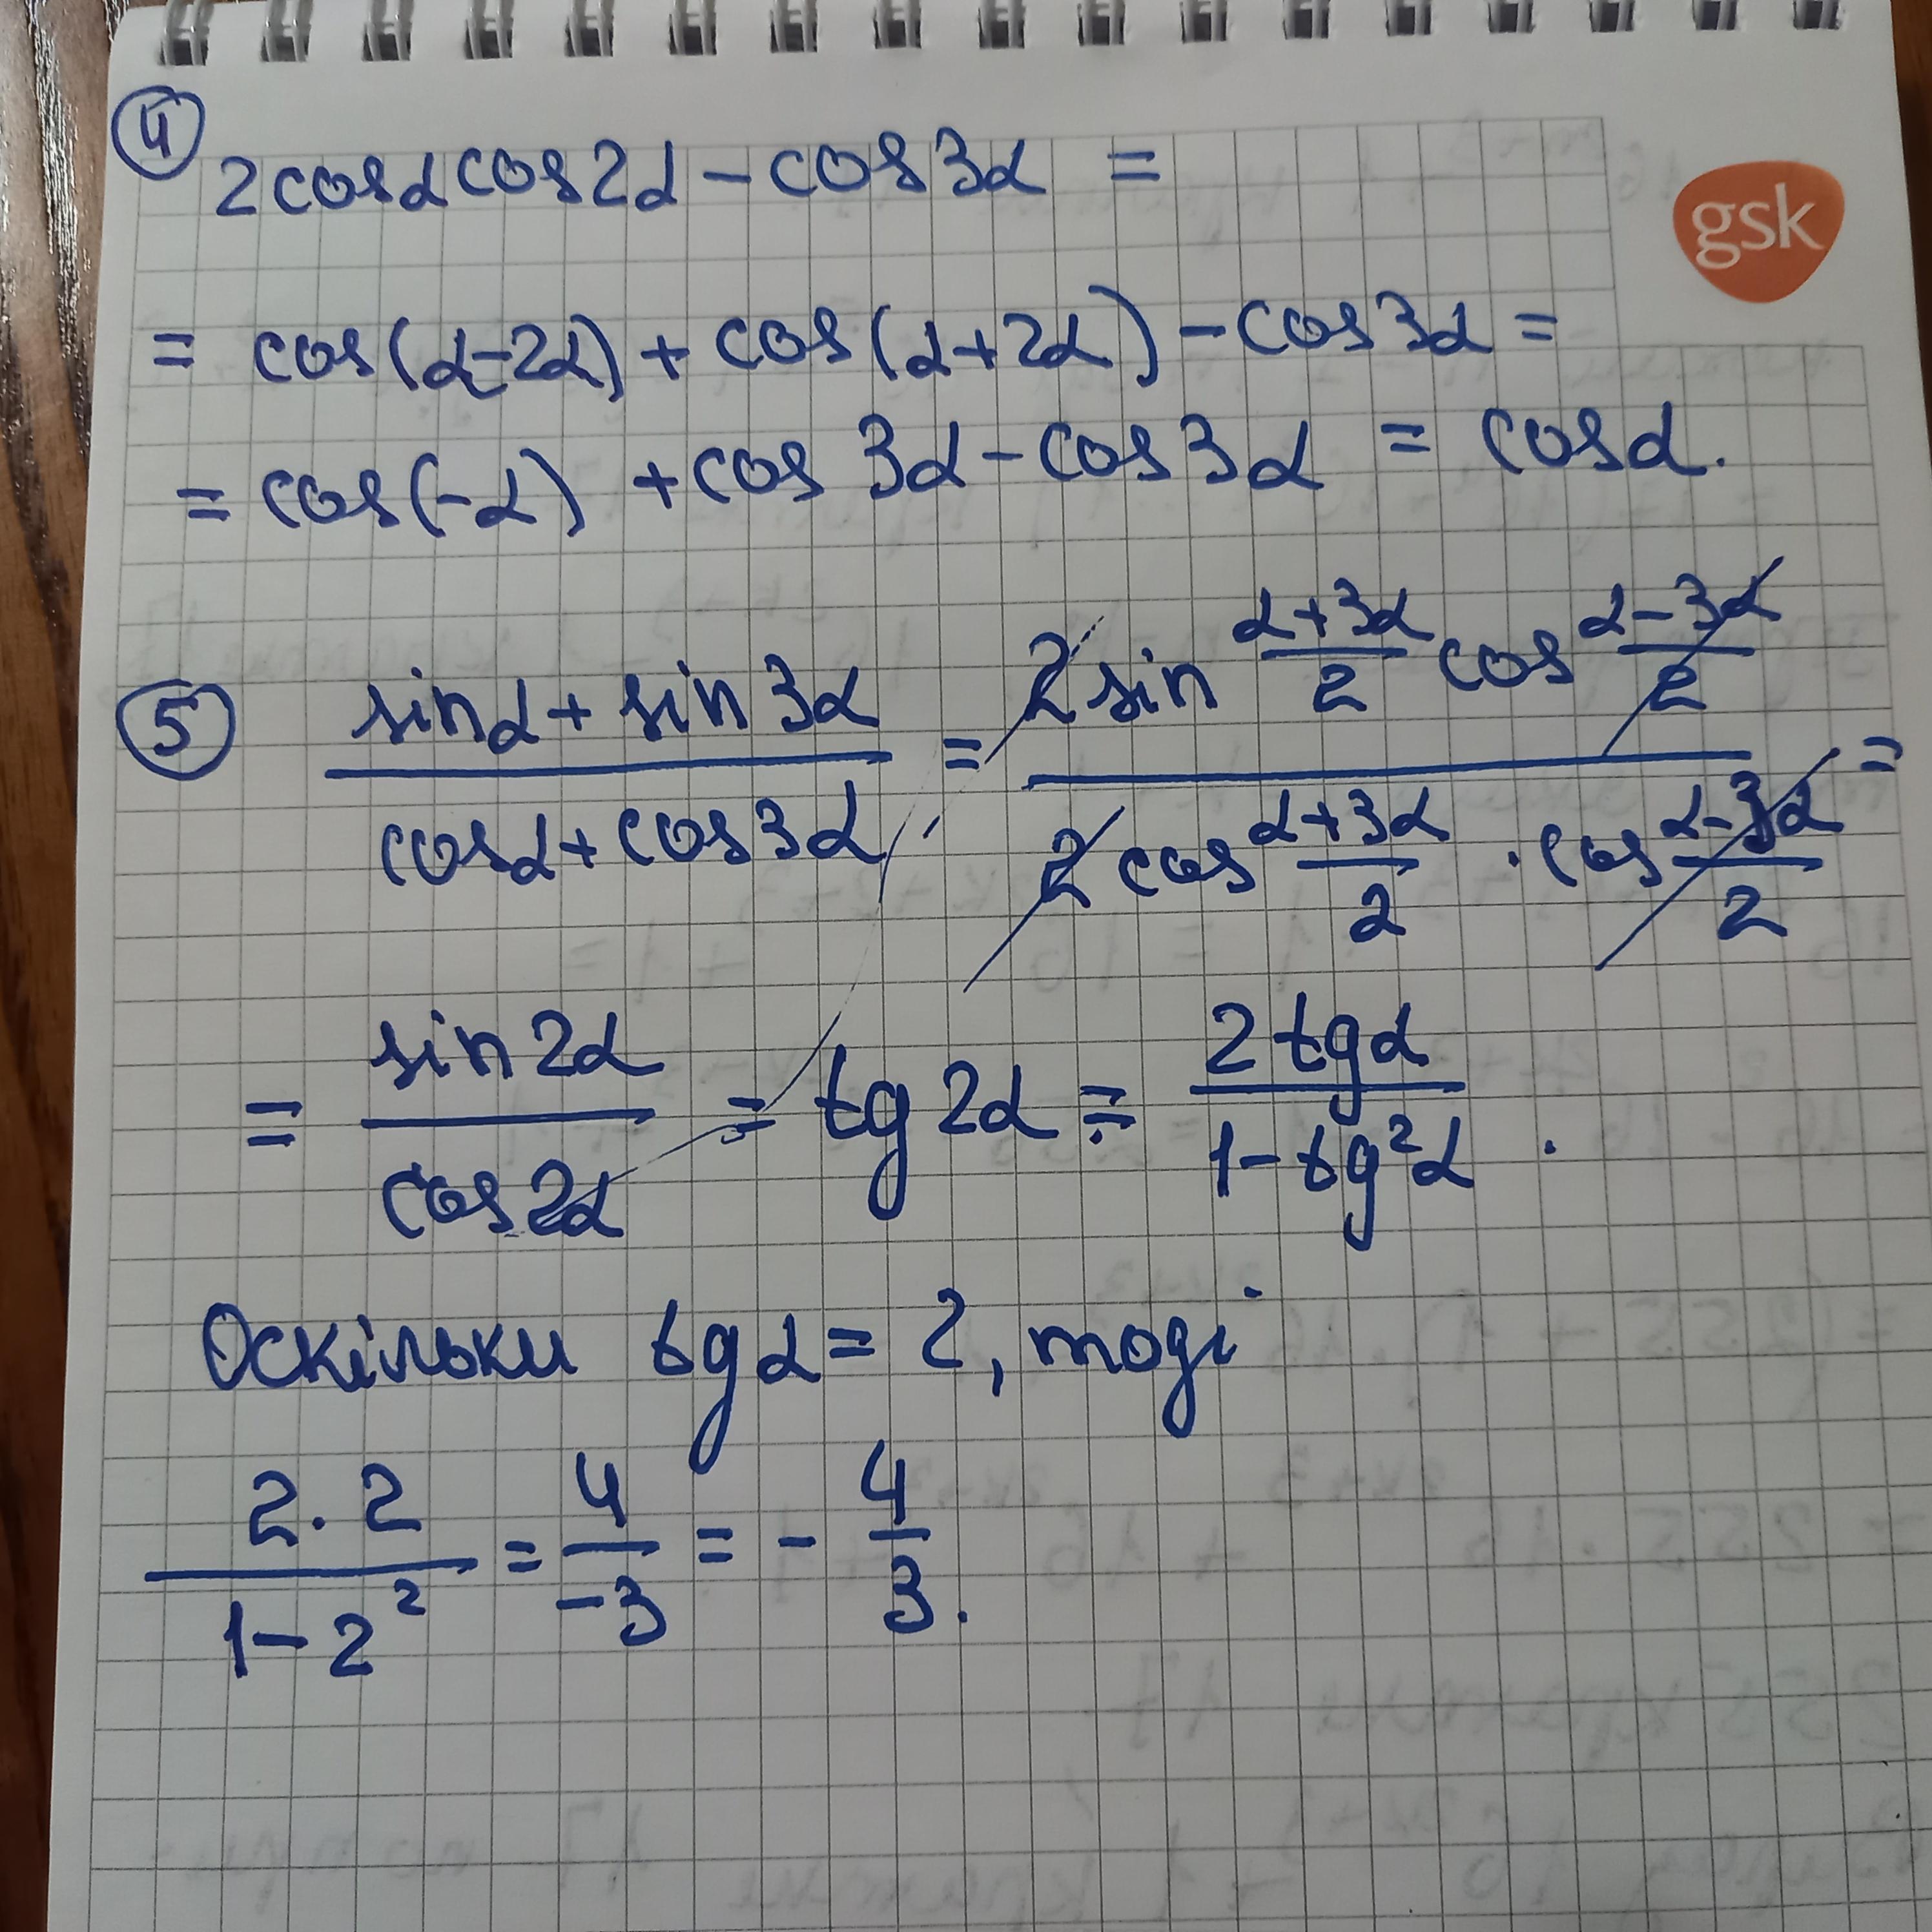 4
2cosαcos2α - cos3α =
gsk
= cos(α-2α) + cos(α+2α) - cos3α =
= cos(-α) + cos 3α - cos3α = cosα.
5
(sinα + sin 3α)/(cosα + cos3α) = (2 sin (α+3α)/2 cos (α-3α)/2)/(2 cos (α+3α)/2 · cos (α-3α)/2) =
= sin2α/cos2α = tg 2α = 2tgα/(1-tg²α) .
Оскільки tgα = 2, тоді
(2·2)/(1-2²) = 4/-3 = - 4/3.